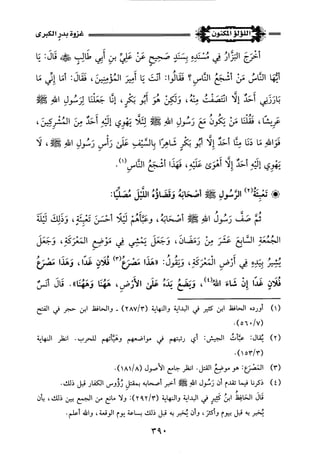 اللؤلؤ المكنون
غزوة بدر الكبرى
أَخْرَجَ الْبَزَّارُ فِي مُسْنَدِهِ بِسَنَدٍ صَحِيحٍ عَنْ عَلِيِّ بنِ أَبِي طَالِبٍ ﷺ قَالَ: يَا
أَيُّهَا النَّاسُ مَنْ أَشْجَعُ النَّاسِ؟ فَقَالُوا: أَنْتَ يَا أَمِيرَ الْمُؤْمِنِينَ، فَقَالَ: أَمَا إِنِّي مَا
بَارَزَنِي أَحَدٌ إِلَّا انْتَصَفْتُ مِنْهُ، وَلَكِنْ هُوَ أَبُو بَكْرٍ، إِنَّا جَعَلْنَا لِرَسُولِ اللهِ ﷺ
عَرِيشًا، فَقُلْنَا مَنْ يَكُونُ مَعَ رَسُولِ اللهِ ﷺ لِئَلَّا يَهْوِي إِلَيْهِ أَحَدٌ مِنَ الْمُشْرِكِينَ،
فَوَاللهِ مَا دَنَا مِنَّا أَحَدٌ إِلَّا أَبُو بَكْرٍ شَاهِرًا بِالسَّيْفِ عَلَى رَأْسِ رَسُولِ اللهِ ﷺ، لَا
يَهْوِي إِلَيْهِ أَحَدٌ إِلَّا أَهْوَى عَلَيْهِ، فَهَذَا أَشْجَعُ النَّاسِ(١).
تَعْبِئَةُ(٢) الرَّسُولِ ﷺ أَصْحَابَهُ وَقَضَاؤُهُ اللَّيْلَ مُصَلِّيًا:
ثُمَّ صَفَّ رَسُولُ اللهِ ﷺ أَصْحَابَهُ، وعَبَّأَهُمْ لَيْلًا أَحْسَنَ تَعْبِئَةٍ، وَذَلِكَ لَيْلَةَ
الْجُمُعَةِ السَّابِعَ عَشَرَ مِنْ رَمَضَانَ، وَجَعَلَ يَمْشِي فِي مَوْضِعِ الْمَعْرَكَةِ، وَجَعَلَ
يُشِيرُ بِيَدِهِ فِي أَرْضِ الْمَعْرَكَةِ، وَيَقُولُ: «هَذَا مَصْرَعُ(٣) فُلَانٍ غَدًا، وَهَذَا مَصْرَعُ
فُلَانٍ غَدًا إِنْ شَاءَ اللهُ(٤)»، وَيَضَعُ يَدَهُ عَلَى الْأَرْضِ، هَهُنَا وَهَهُنَا». قَالَ أَنَسٌ
(١) أورده الحافظ ابن كثير في البداية والنهاية (٢٨٧/٣) ـ والحافظ ابن حجر في الفتح
(٥٦٠/٧).
(٢) يُقال: عبَّأتُ الجيش: أي رتبتهم في مواضعهم وهيَّأتهم للحرب. انظر النهاية
(١٥٣/٣).
(٣) المَصْرَع: هو موضِعُ القتل. انظر جامع الأصول (١٨١/٨).
(٤) ذكرنا فيما تقدم أن رَسُول الله ﷺ أخبر أصحابه بمقتل رُؤوس الكفار قبل ذلك.
قَالَ الحَافِظُ ابْنُ كَثِيرٍ في البداية والنهاية (٢٩٢/٣): ولا مانع من الجمع بين ذلك، بأن
يُخبر به قبل بيوم وأكثر، وأن يُخبر به قبل ذلك بساعة يوم الوقعة، والله أعلم.
٣٩٠